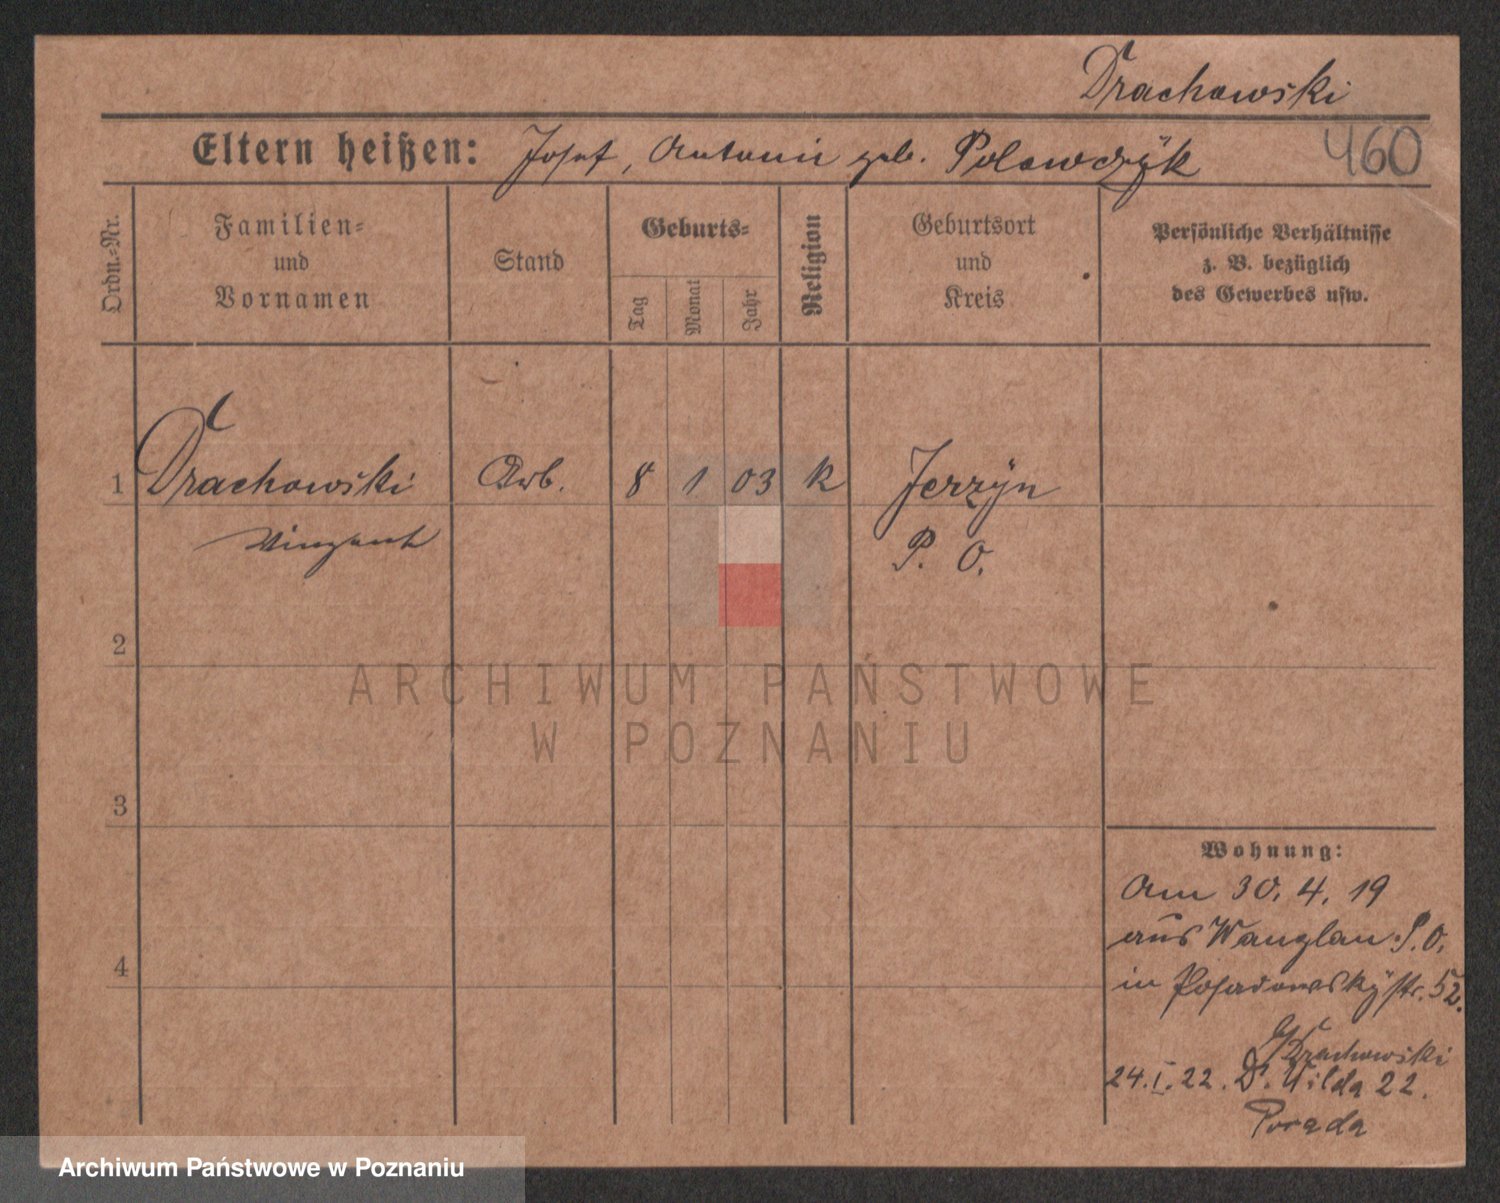 Drachowski
Eltern heißen: Josef, Antonie geb. Polowczyk
460
Ordn.-Nr.
Familien-
und
Vornamen
Stand
Geburts-
Tag
Monat
Jahr
Religion
Geburtsort
und
Kreis
Persönliche Verhältnisse
z. B. bezüglich
des Gewerbes usw.
1 Drachowski Arb. 8 1 03 K Jerzÿn
Vinzent P. O.
2
3
4
Wohnung:
Am 30. 4. 19
aus Wanglau P. O.
in Posadowskÿstr. 52.
Drachowski
24. I. 22. D. Wilda 22.
Porada
ARCHIWUM PAŃSTWOWE
W POZNANIU
Archiwum Państwowe w Poznaniu